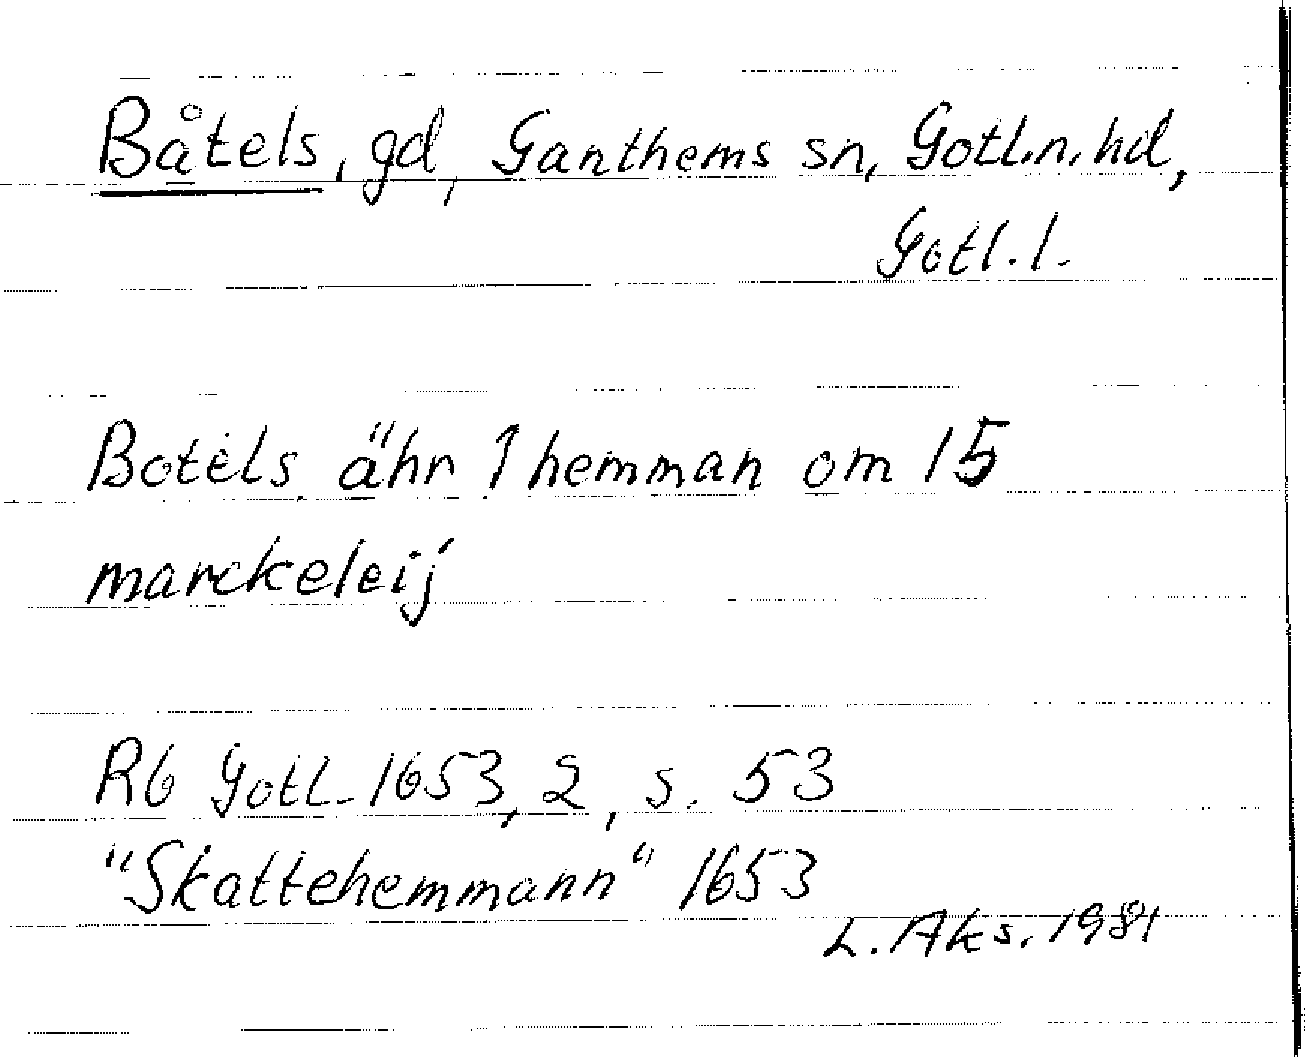 Båtels, gd, Ganthems sn, Gotl.n.hd,
Gotl.l.
Botels ähr 1 hemman om 15
marckeleij
Rb Gotl. 1653, 2, s. 53
"Skattehemmann" 1653
L. Aks. 1981